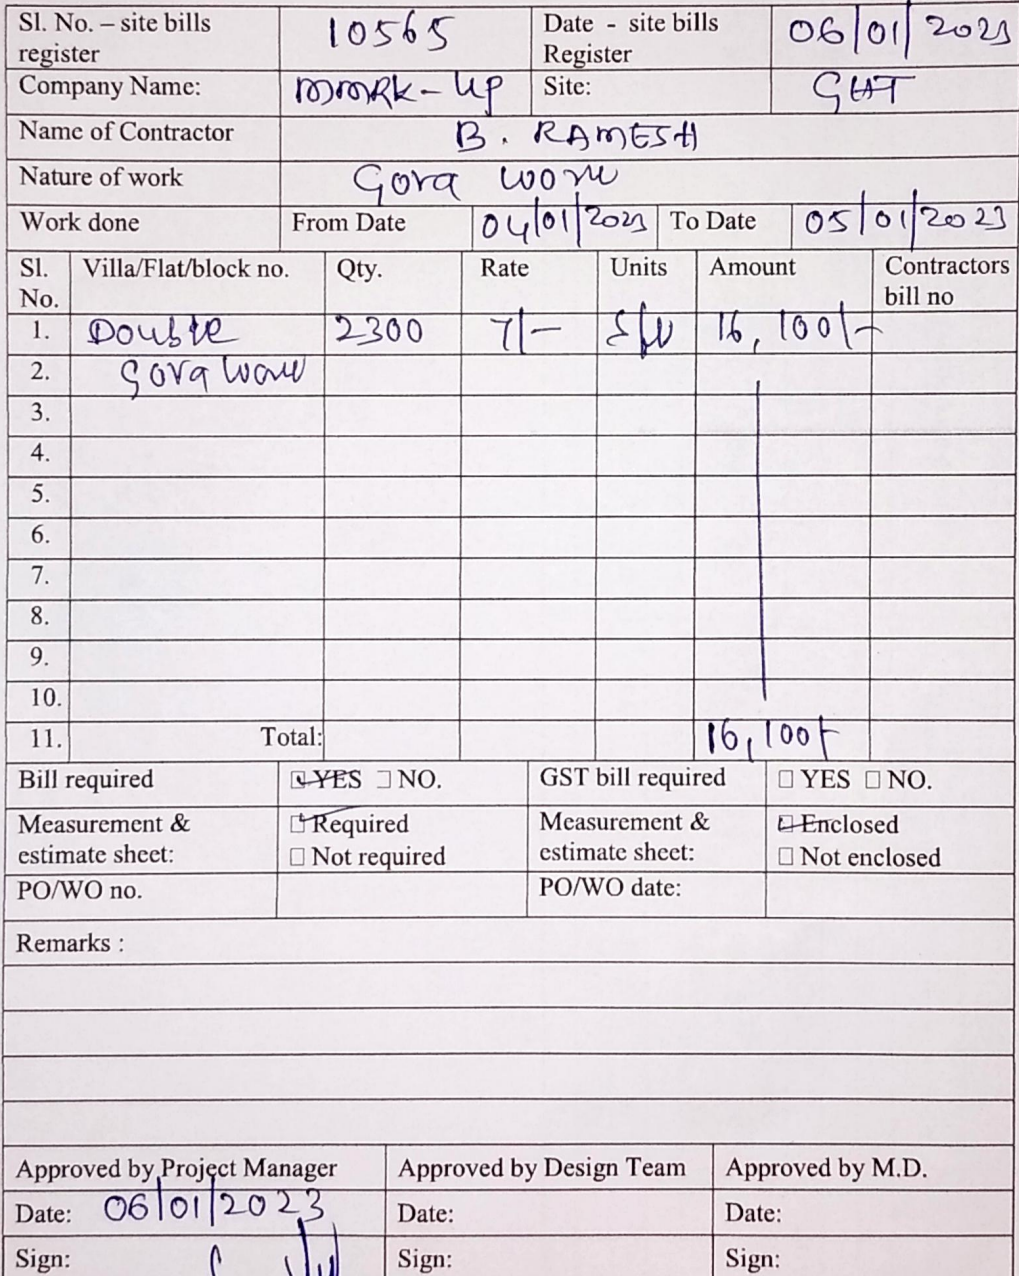 Sl. No. – site bills register 10565 Date - site bills Register 06/01/2023
Company Name: MMRK-UP Site: GHT
Name of Contractor B. RAMESH
Nature of work Gova work
Work done From Date 04/01/2023 To Date 05/01/2023
Sl. No. Villa/Flat/block no. Qty. Rate Units Amount Contractors bill no
1. Double 2300 7/- Sft 16,100/-
2. Gova work
3.
4.
5.
6.
7.
8.
9.
10.
11. Total: 16,100/-
Bill required ☑ YES □ NO. GST bill required □ YES □ NO.
Measurement & estimate sheet: ☑ Required Measurement & estimate sheet: ☑ Enclosed
□ Not required □ Not enclosed
PO/WO no. PO/WO date:
Remarks :
Approved by Project Manager Approved by Design Team Approved by M.D.
Date: 06/01/2023 Date: Date:
Sign: Sign: Sign: